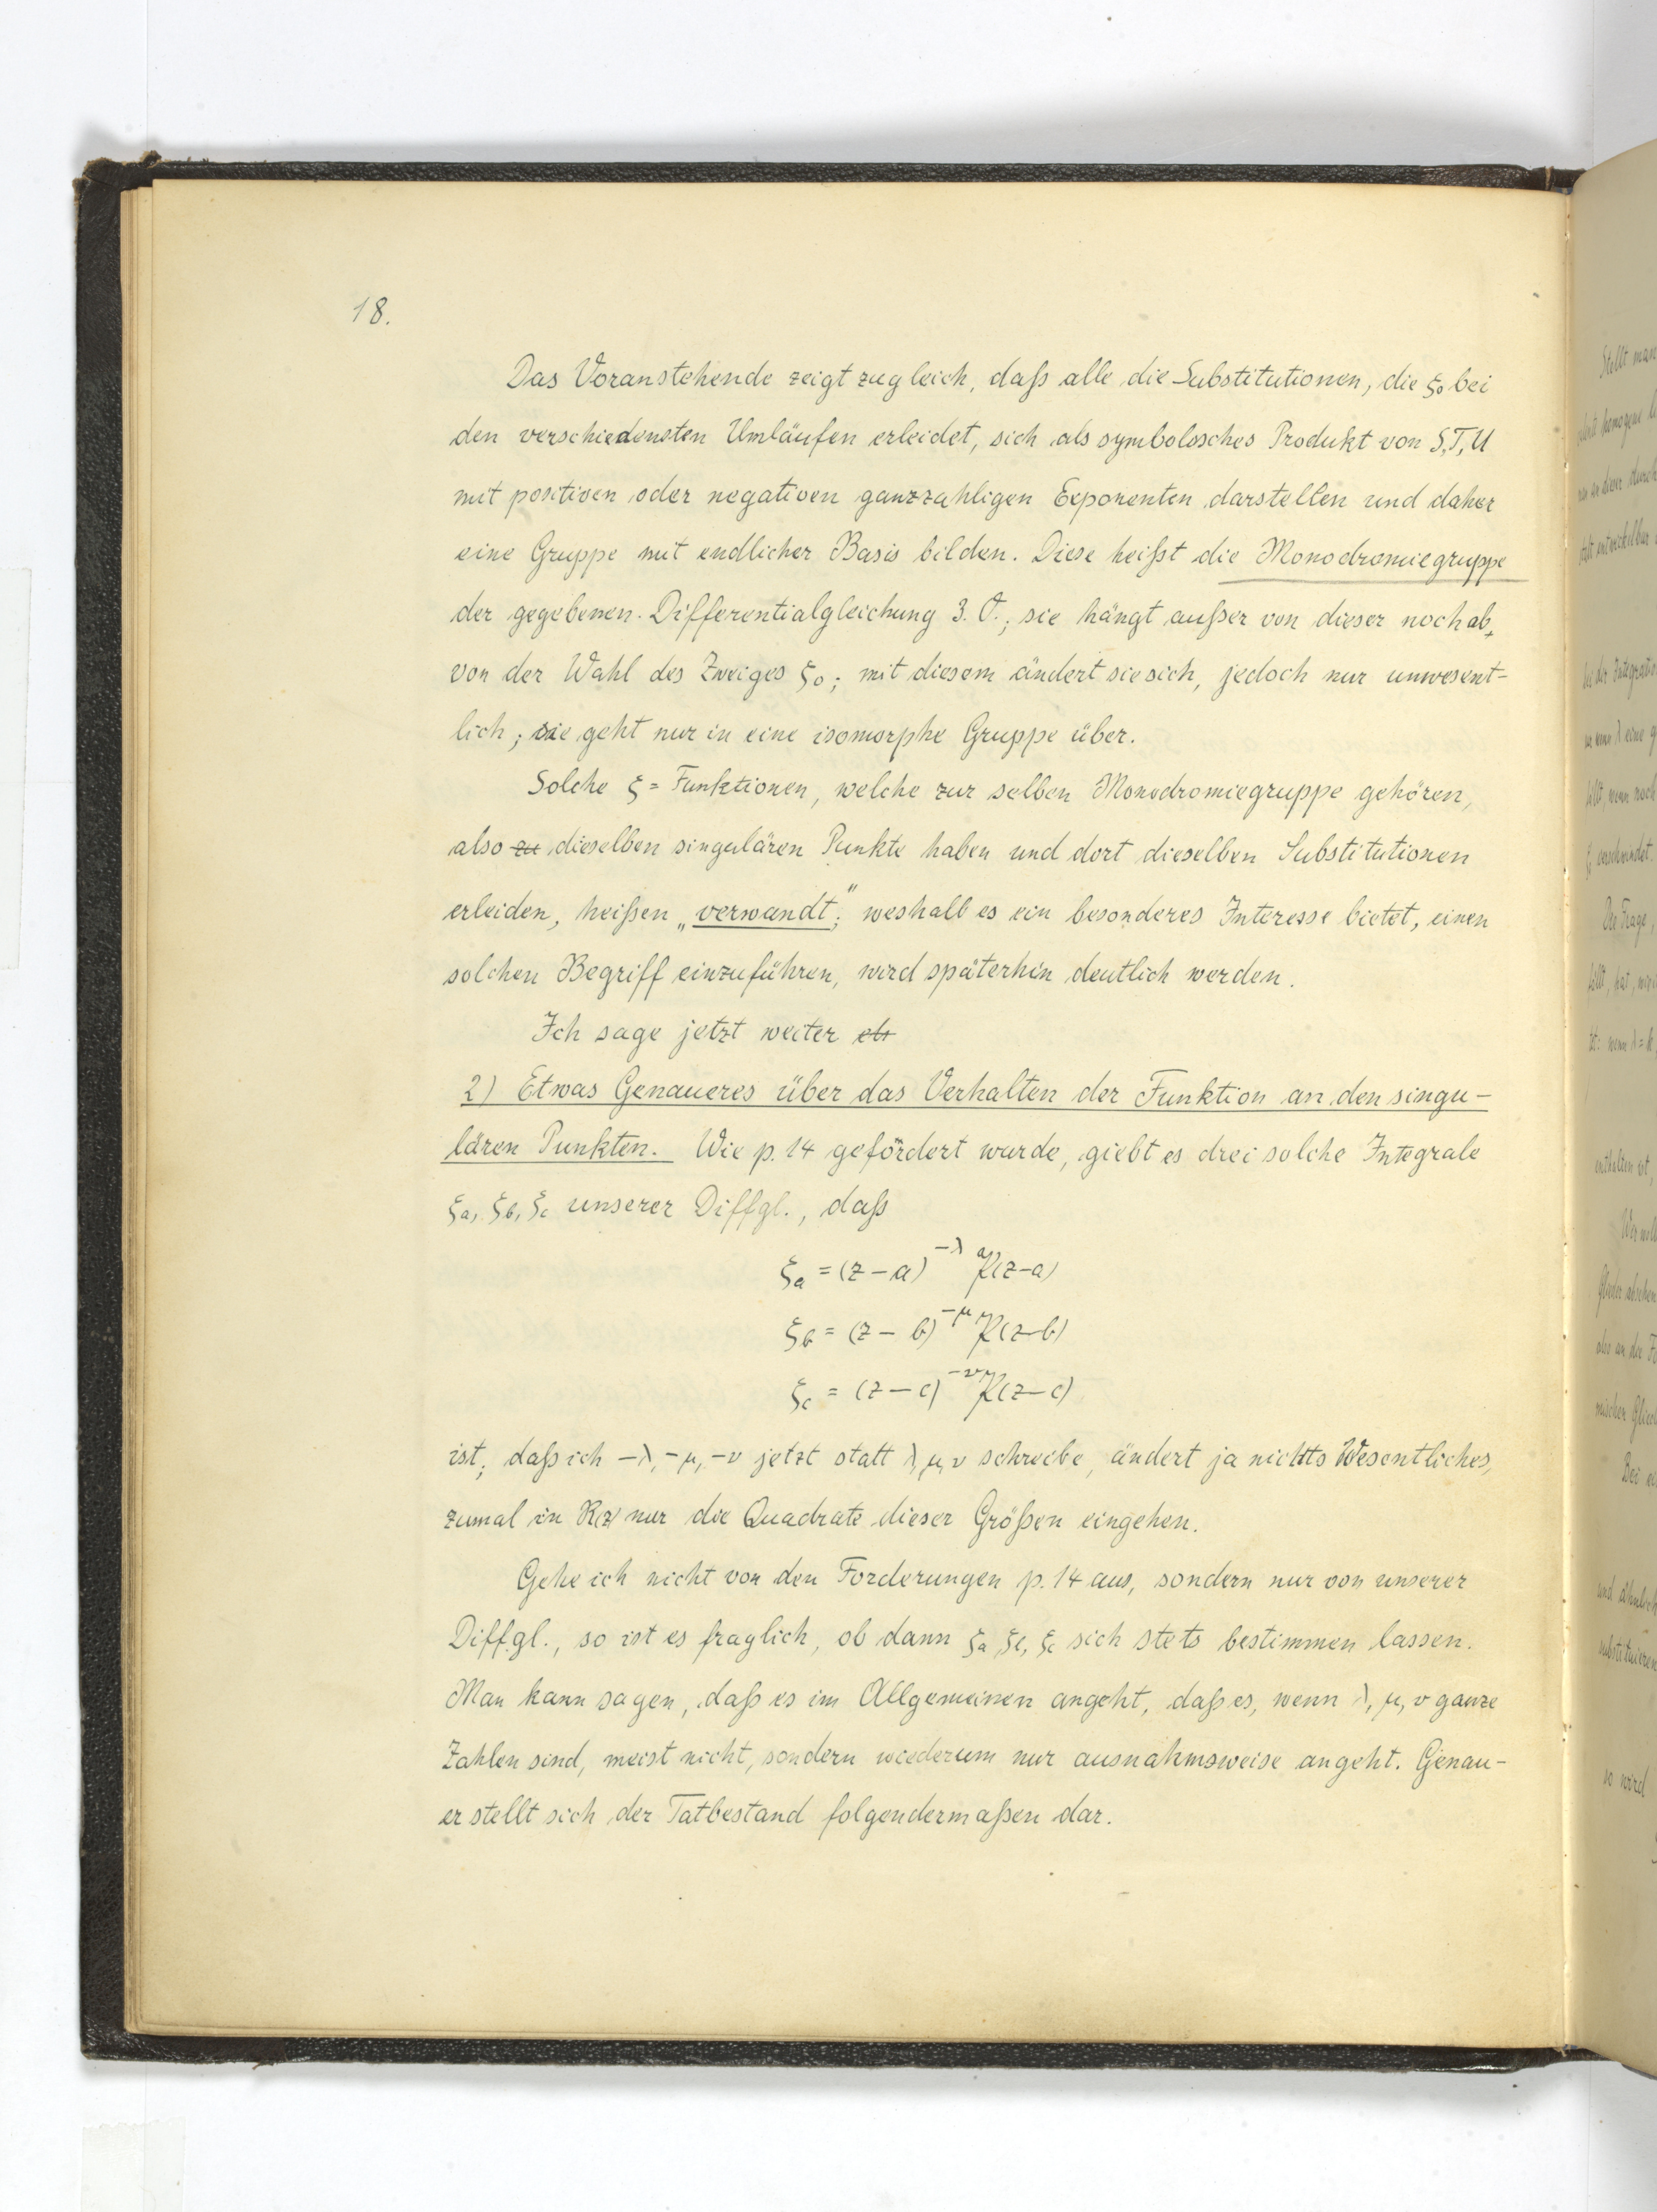 18.
Das Voranstehende zeigt zugleich, daß alle die Substitutionen, die ξ₀ bei
den verschiedensten Umläufen erleidet, sich als symbolisches Produkt von S,T,U
mit positiven oder negativen ganzzahligen Exponenten darstellen und daher
eine Gruppe mit endlicher Basis bilden. Diese heißt die Monodromiegruppe
der gegebenen Differentialgleichung 3. O.; sie hängt außer von dieser noch ab,
von der Wahl des Zweiges ξ₀; mit diesem ändert sie sich, jedoch nur unwesent-
lich; sie geht nur in eine isomorphe Gruppe über.
Solche ξ=Funktionen, welche zur selben Monodromiegruppe gehören,
also zu dieselben singulären Punkte haben und dort dieselben Substitutionen
erleiden, heißen „verwandt“; weshalb es ein besonderes Interesse bietet, einen
solchen Begriff einzuführen, wird späterhin deutlich werden.
Ich sage jetzt weiter
2) Etwas Genaueres über das Verhalten der Funktion an den singu-
lären Punkten. Wie p. 14 gefördert wurde, giebt es drei solche Integrale
ξa, ξb, ξc unserer Diffgl., daß
ξa = (z-a)^{-λ} (z-a)
ξb = (z-b)^{-μ} (z-b)
ξc = (z-c)^{-ν} (z-c)
ist; daß ich -λ, -μ, -ν jetzt statt λ, μ, ν schreibe, ändert ja nichts Wesentliches,
zumal in R(z) nur die Quadrate dieser Größen eingehen.
Gehe ich nicht von den Forderungen p. 14 aus, sondern nur von unserer
Diffgl., so ist es fraglich, ob dann ξa, ξb, ξc sich stets bestimmen lassen.
Man kann sagen, daß es im Allgemeinen angeht, daß es, wenn λ, μ, ν ganze
Zahlen sind, meist nicht, sondern wiederum nur ausnahmsweise angeht. Genau-
er stellt sich der Tatbestand folgendermaßen dar.